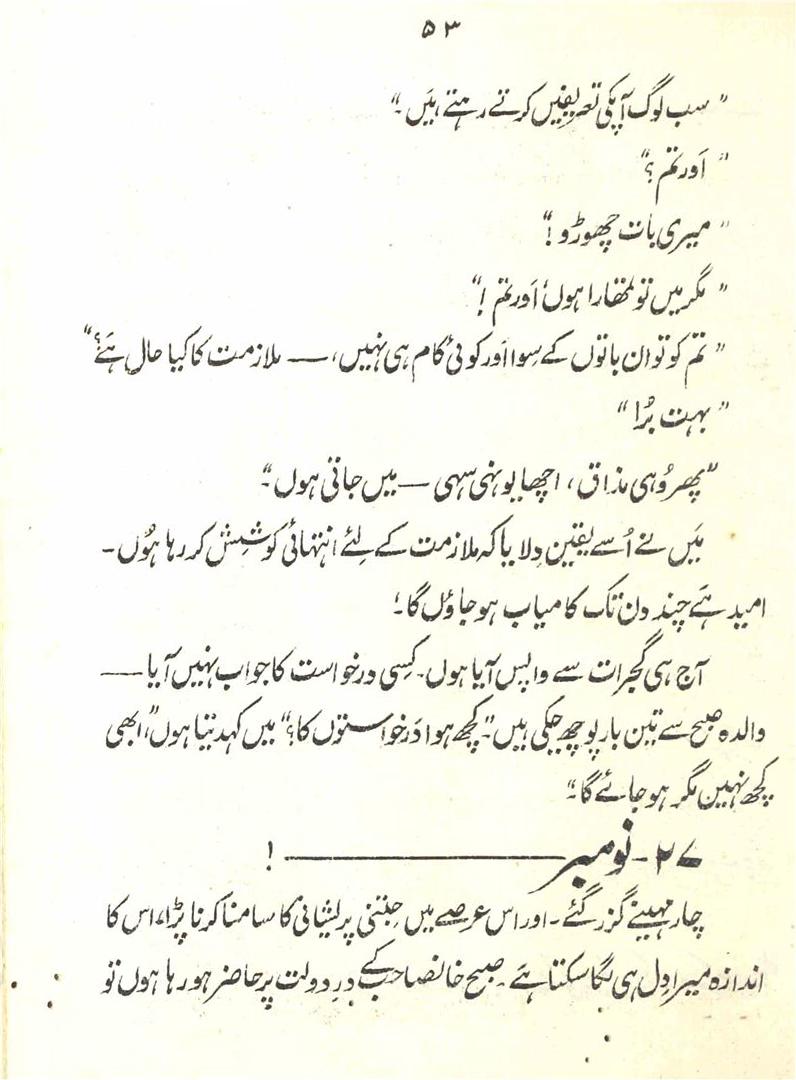 ۵۳
"سب لوگ آپکی تعریفیں کرتے رہتے ہیَں۔"
"اَور تم؟"
"میری بات چھوڑو!"
"مگر میں تو تمھارا ہوں اَور تم!"
"تم کو تو ان باتوں کے سِوا اَور کوئی کام ہی نہیں، — ملازمت کا کیا حال ہَے؟"
"بہت بُرا"
"پھر وُہی مذاق، اچھا یونہی سہی — میں جاتی ہوں۔"
میَں نے اُسے یقین دِلایا کہ ملازمت کے لِئے انتہائی کوشِش کر رہا ہُوں۔
امید ہَے چند دن تک کامیاب ہو جاؤں گا۔!
آج ہی گجرات سے واپس آیا ہوں۔ کِسی درخواست کا جواب نہیں آیا —
والدہ صبح سے تین بار پوچھ چکی ہیں۔ "کچھ ہوا دَرخواستوں کا؟" میں کہدیتا ہوں "ابھی
کچھ نہیں مگر ہو جائے گا۔"
۲۷۔ نومبر ——— !
چار مہینے گزر گئے۔ اور اس عرصے میں جِتنی پریشانی کا سامنا کرنا پڑا، اس کا
اندازہ میرا دِل ہی لگا سکتا ہَے۔ صبح خانصاحب کے درِ دولت پر حاضر ہو رہا ہوں تو